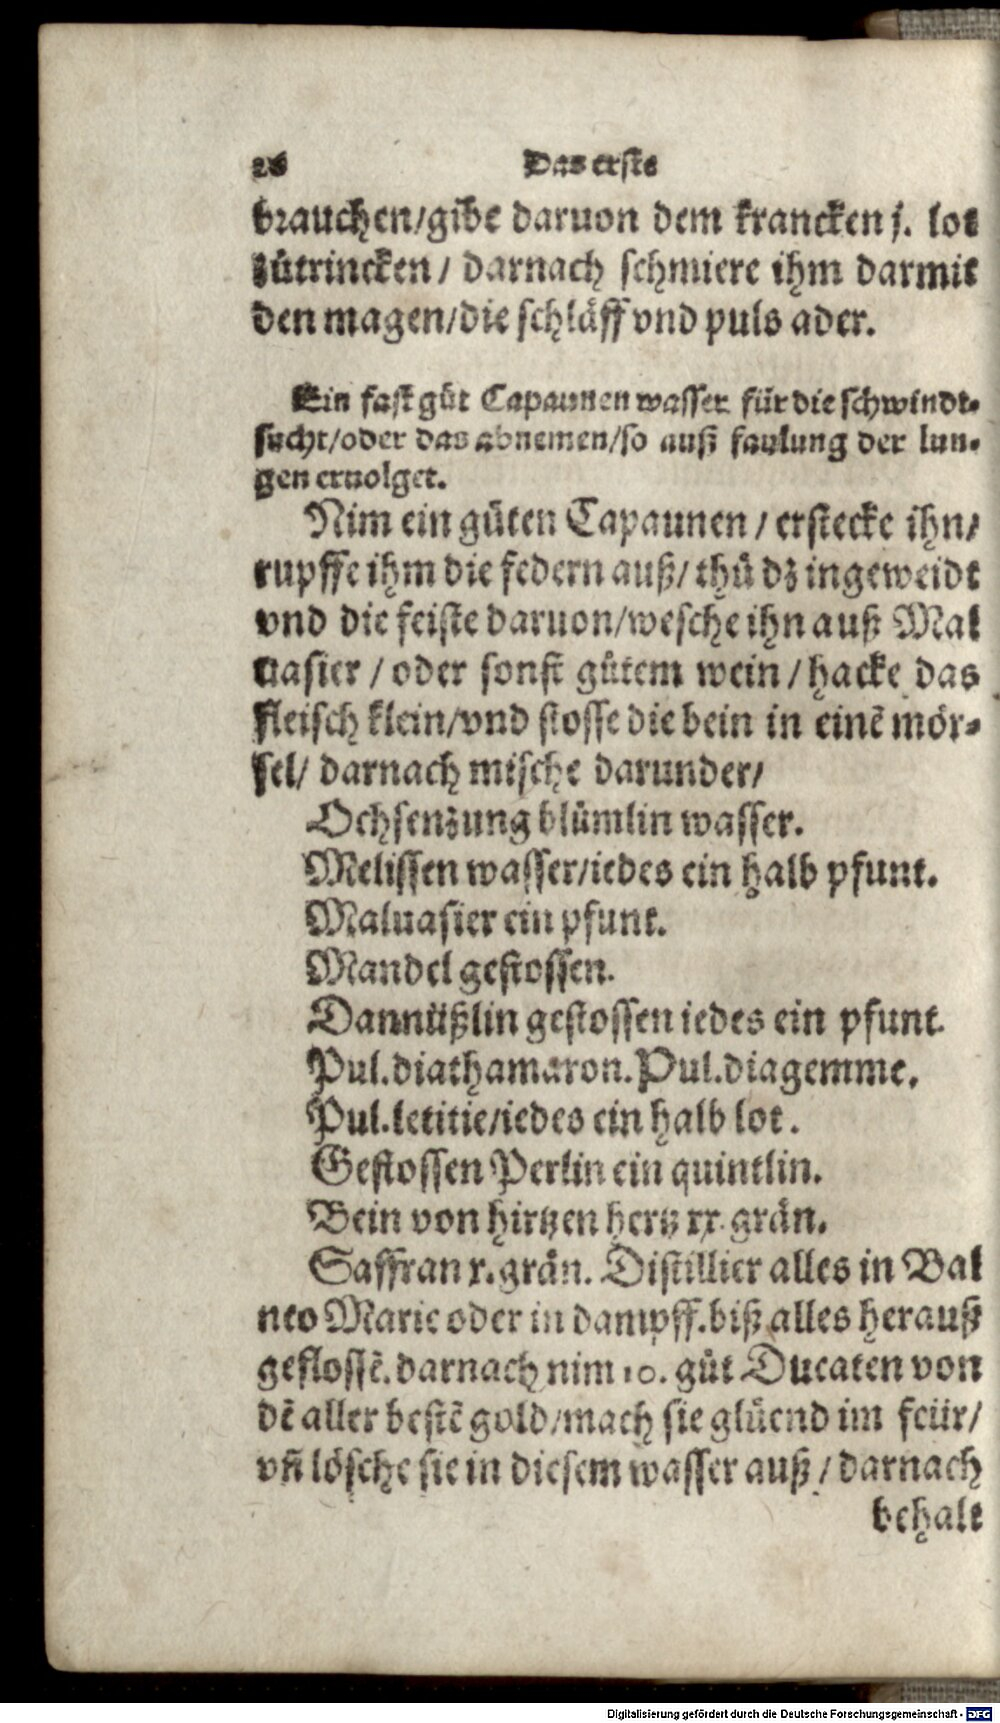 26 Das erste
brauchen/gibe daruon dem krancken j. lot
zůtrincken / darnach schmiere ihm darmit
den magen/die schläff vnd puls ader.
Ein fast gůt Capaunen wasser für die schwindt⸗
sucht/oder das abnemen/so auß faulung der lun⸗
gen eruolget.
Nim ein gůten Capaunen / erstecke ihn/
rupffe ihm die federn auß/ thů dz ingeweidt
vnd die feiste daruon/wesche ihn auß Mal
uasier / oder sonst gůtem wein / hacke das
fleisch klein/vnd stosse die bein in einẽ mör⸗
sel/ darnach mische darunder/
Ochsenzung blümlin wasser.
Melissen wasser/iedes ein halb pfunt.
Maluasier ein pfunt.
Mandel gestossen.
Dannüßlin gestossen iedes ein pfunt.
Pul.diathamaron. Pul.diagemme.
Pul.letitie/iedes ein halb lot.
Gestossen Perlin ein quintlin.
Bein von hirtzen hertz xx. grän.
Saffran x. grän. Distillier alles in Bal
neo Marie oder in dampff. biß alles herauß
geflossẽ. darnach nim 10. gůt Ducaten von
dẽ aller bestẽ gold/mach sie glüend im feür/
vñ lösche sie in diesem wasser auß / darnach
behalt
Digitalisierung gefördert durch die Deutsche Forschungsgemeinschaft - DFG